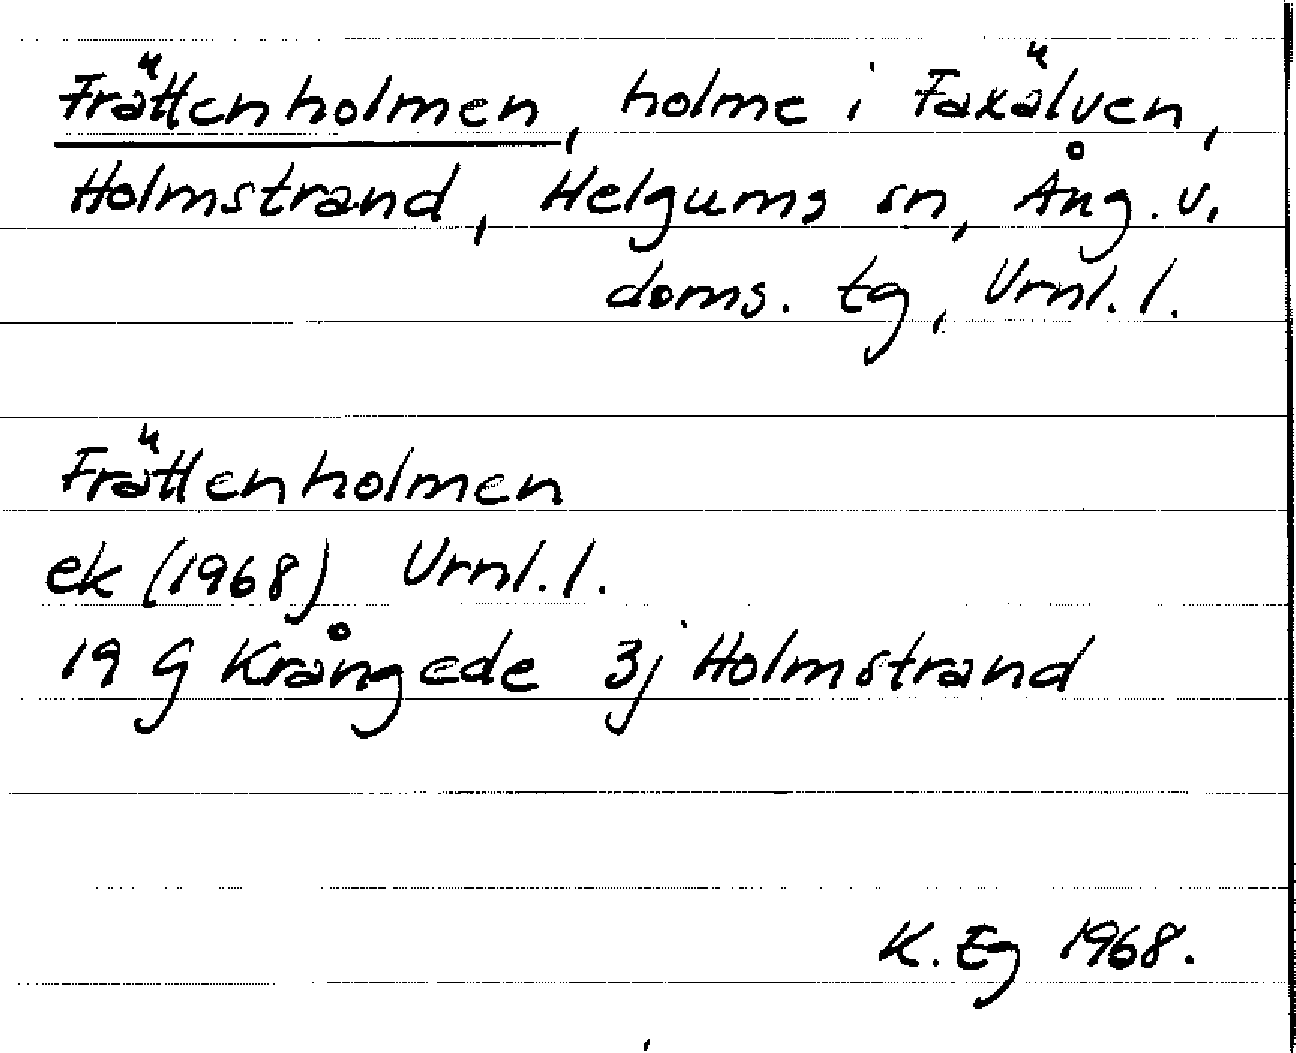 Frättenholmen, holme i Faxälven,
Holmstrand, Helgums sn, Ång. v.
doms. tg, Vrnl. l.
Frättenholmen
ek (1968) Vrnl. l.
19 G Krångede 3j Holmstrand
K. Eg 1968.